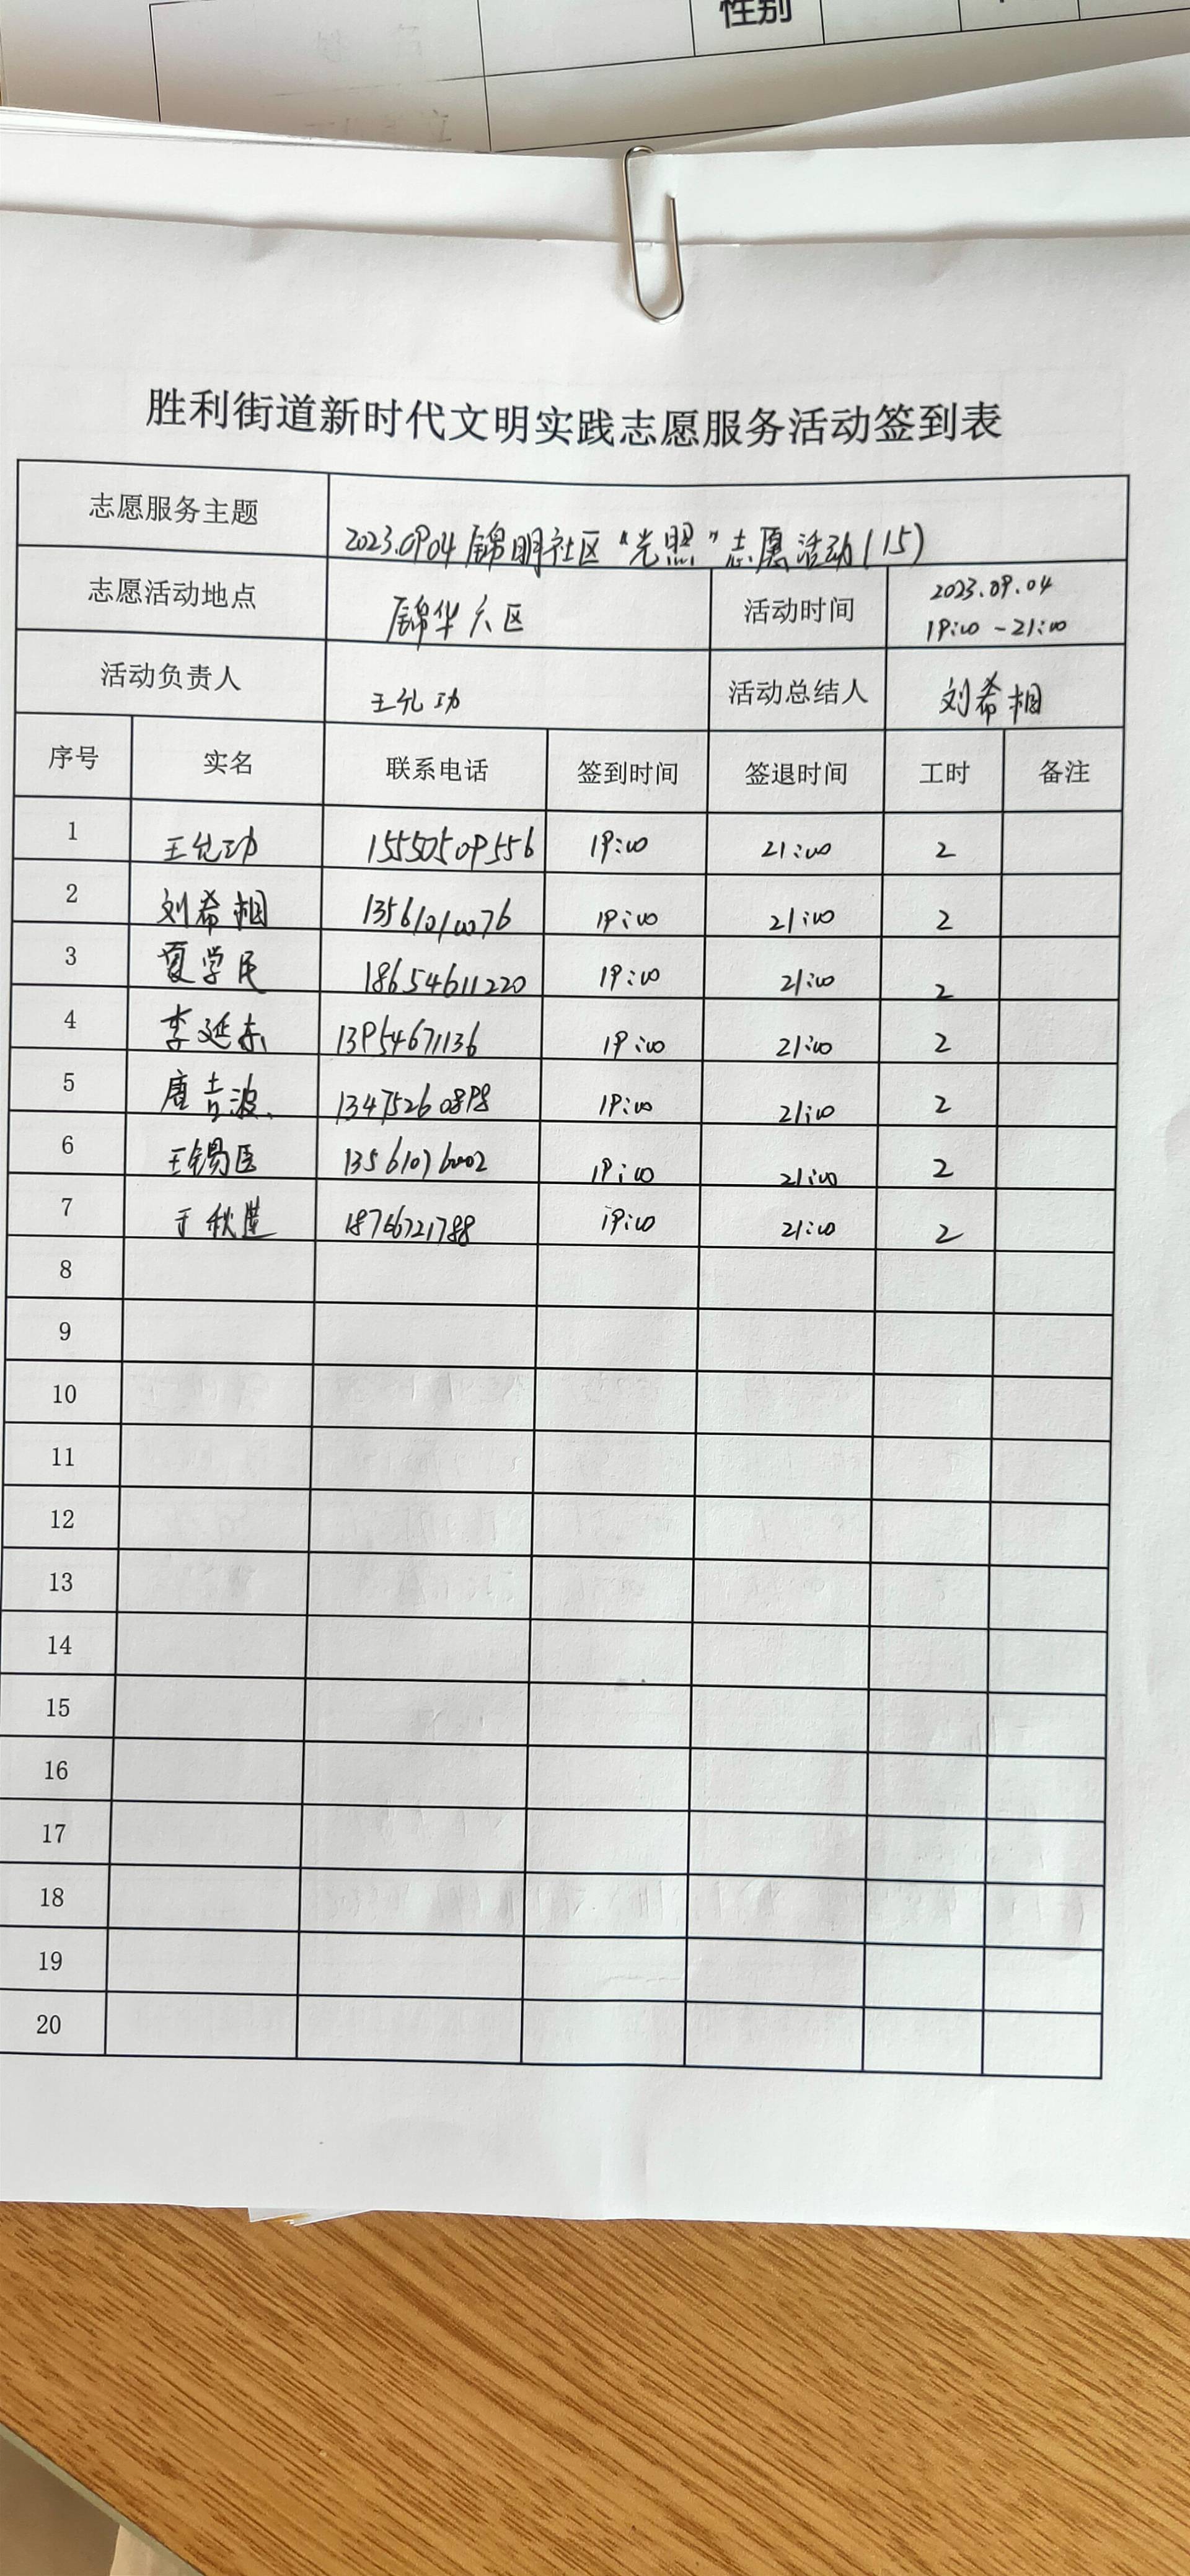 性别
胜利街道新时代文明实践志愿服务活动签到表
志愿服务主题 2023.0904锦明社区“光照”志愿活动(15)
志愿活动地点 锦华六区 活动时间 2023.09.04
19:00-21:00
活动负责人 王允功 活动总结人 刘希相
序号 实名 联系电话 签到时间 签退时间 工时 备注
1 王允功 15550509556 19:00 21:00 2
2 刘希相 13561010076 19:00 21:00 2
3 夏学民 18654611220 19:00 21:00 2
4 李延东 13954671136 19:00 21:00 2
5 唐吉波 13475260898 19:00 21:00 2
6 王锡医 13561076002 19:00 21:00 2
7 于秋莲 18766721788 19:00 21:00 2
8
9
10
11
12
13
14
15
16
17
18
19
20